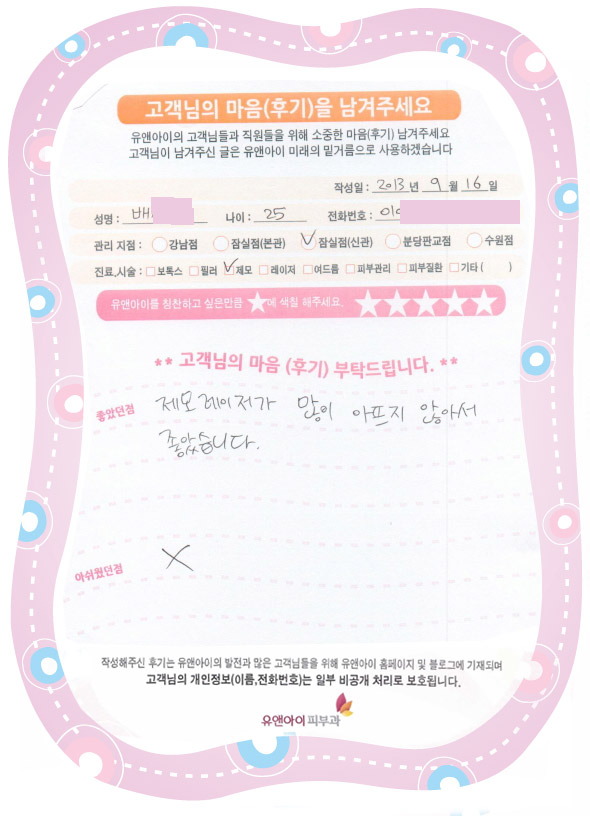 고객님의 마음(후기)을 남겨주세요
유앤아이의 고객님들과 직원들을 위해 소중한 마음(후기) 남겨주세요
고객님이 남겨주신 글은 유앤아이 미래의 밑거름으로 사용하겠습니다
작성일 : 2013 년 9 월 16 일
성명 : 배 나이 : 25 전화번호 : 010
관리 지점 : 강남점 잠실점(본관) 잠실점(신관) 분당판교점 수원점
진료,시술 : 보톡스 필러 제모 레이저 여드름 피부관리 피부질환 기타 ( )
유앤아이를 칭찬하고 싶은만큼 ★에 색칠 해주세요. ★★★★★
** 고객님의 마음 (후기) 부탁드립니다. **
좋았던점 제모레이저가 많이 아프지 않아서
좋았습니다.
아쉬웠던점 X
작성해주신 후기는 유앤아이의 발전과 많은 고객님들을 위해 유앤아이 홈페이지 및 블로그에 기재되며
고객님의 개인정보(이름,전화번호)는 일부 비공개 처리로 보호됩니다.
유앤아이피부과